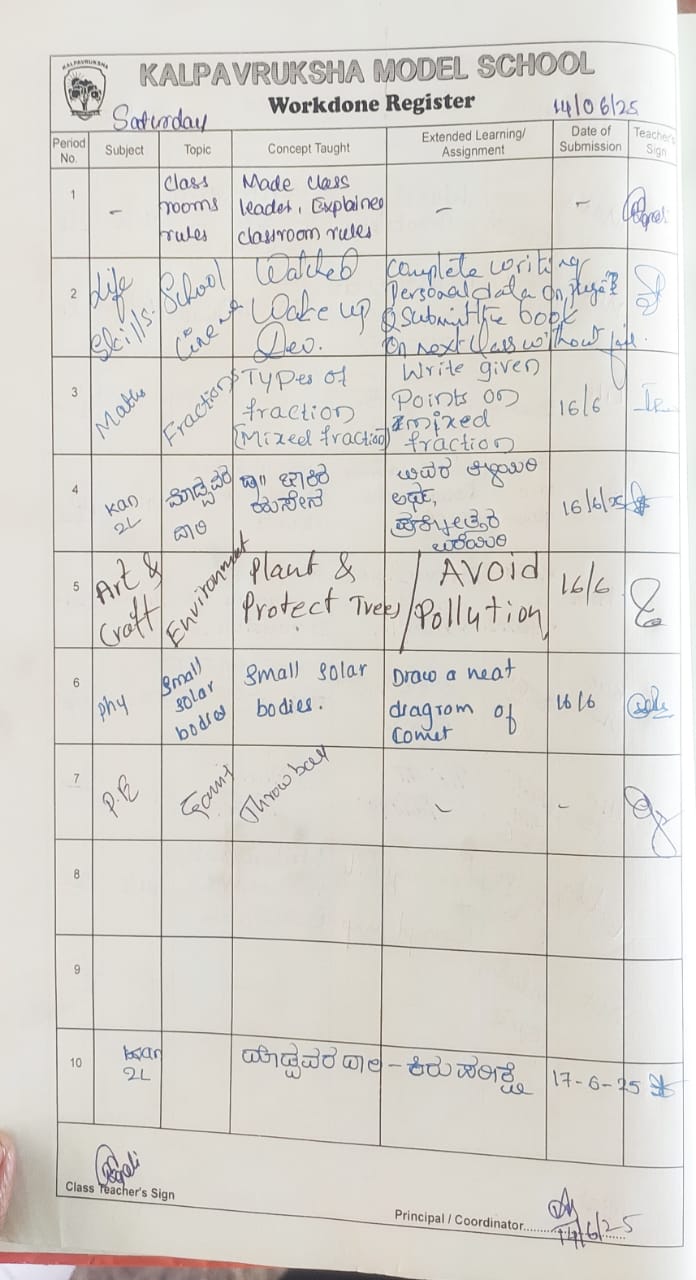 KALPAVRUKSHA
KALPAVRUKSHA MODEL SCHOOL
Workdone Register
Saturday
14/06/25
Period No. Subject Topic Concept Taught Extended Learning/ Assignment Date of Submission Teacher's Sign
1 - Class rooms rules Made class leader, Explained classroom rules - -
2 Life Skills. School Cinema Watched Wake up Dev. Complete writing Personal data on & submit the book on next class without fail.
3 Maths Fractions Types of fraction (Mixed fraction) Write given Points on mixed fraction 16/6
4 Kan 2L ದಾರಿ 16/6/25
5 Art & Craft Environment Plant & Protect Trees / AVOID Pollution 16/6
6 Phy Small solar bodies Small solar bodies. Draw a neat diagram of Comet 16/6
7 P.E - -
8
9
10 Kan 2L - ಕಿರು ಪರೀಕ್ಷೆ 17-6-25
Class Teacher's Sign
Principal / Coordinator